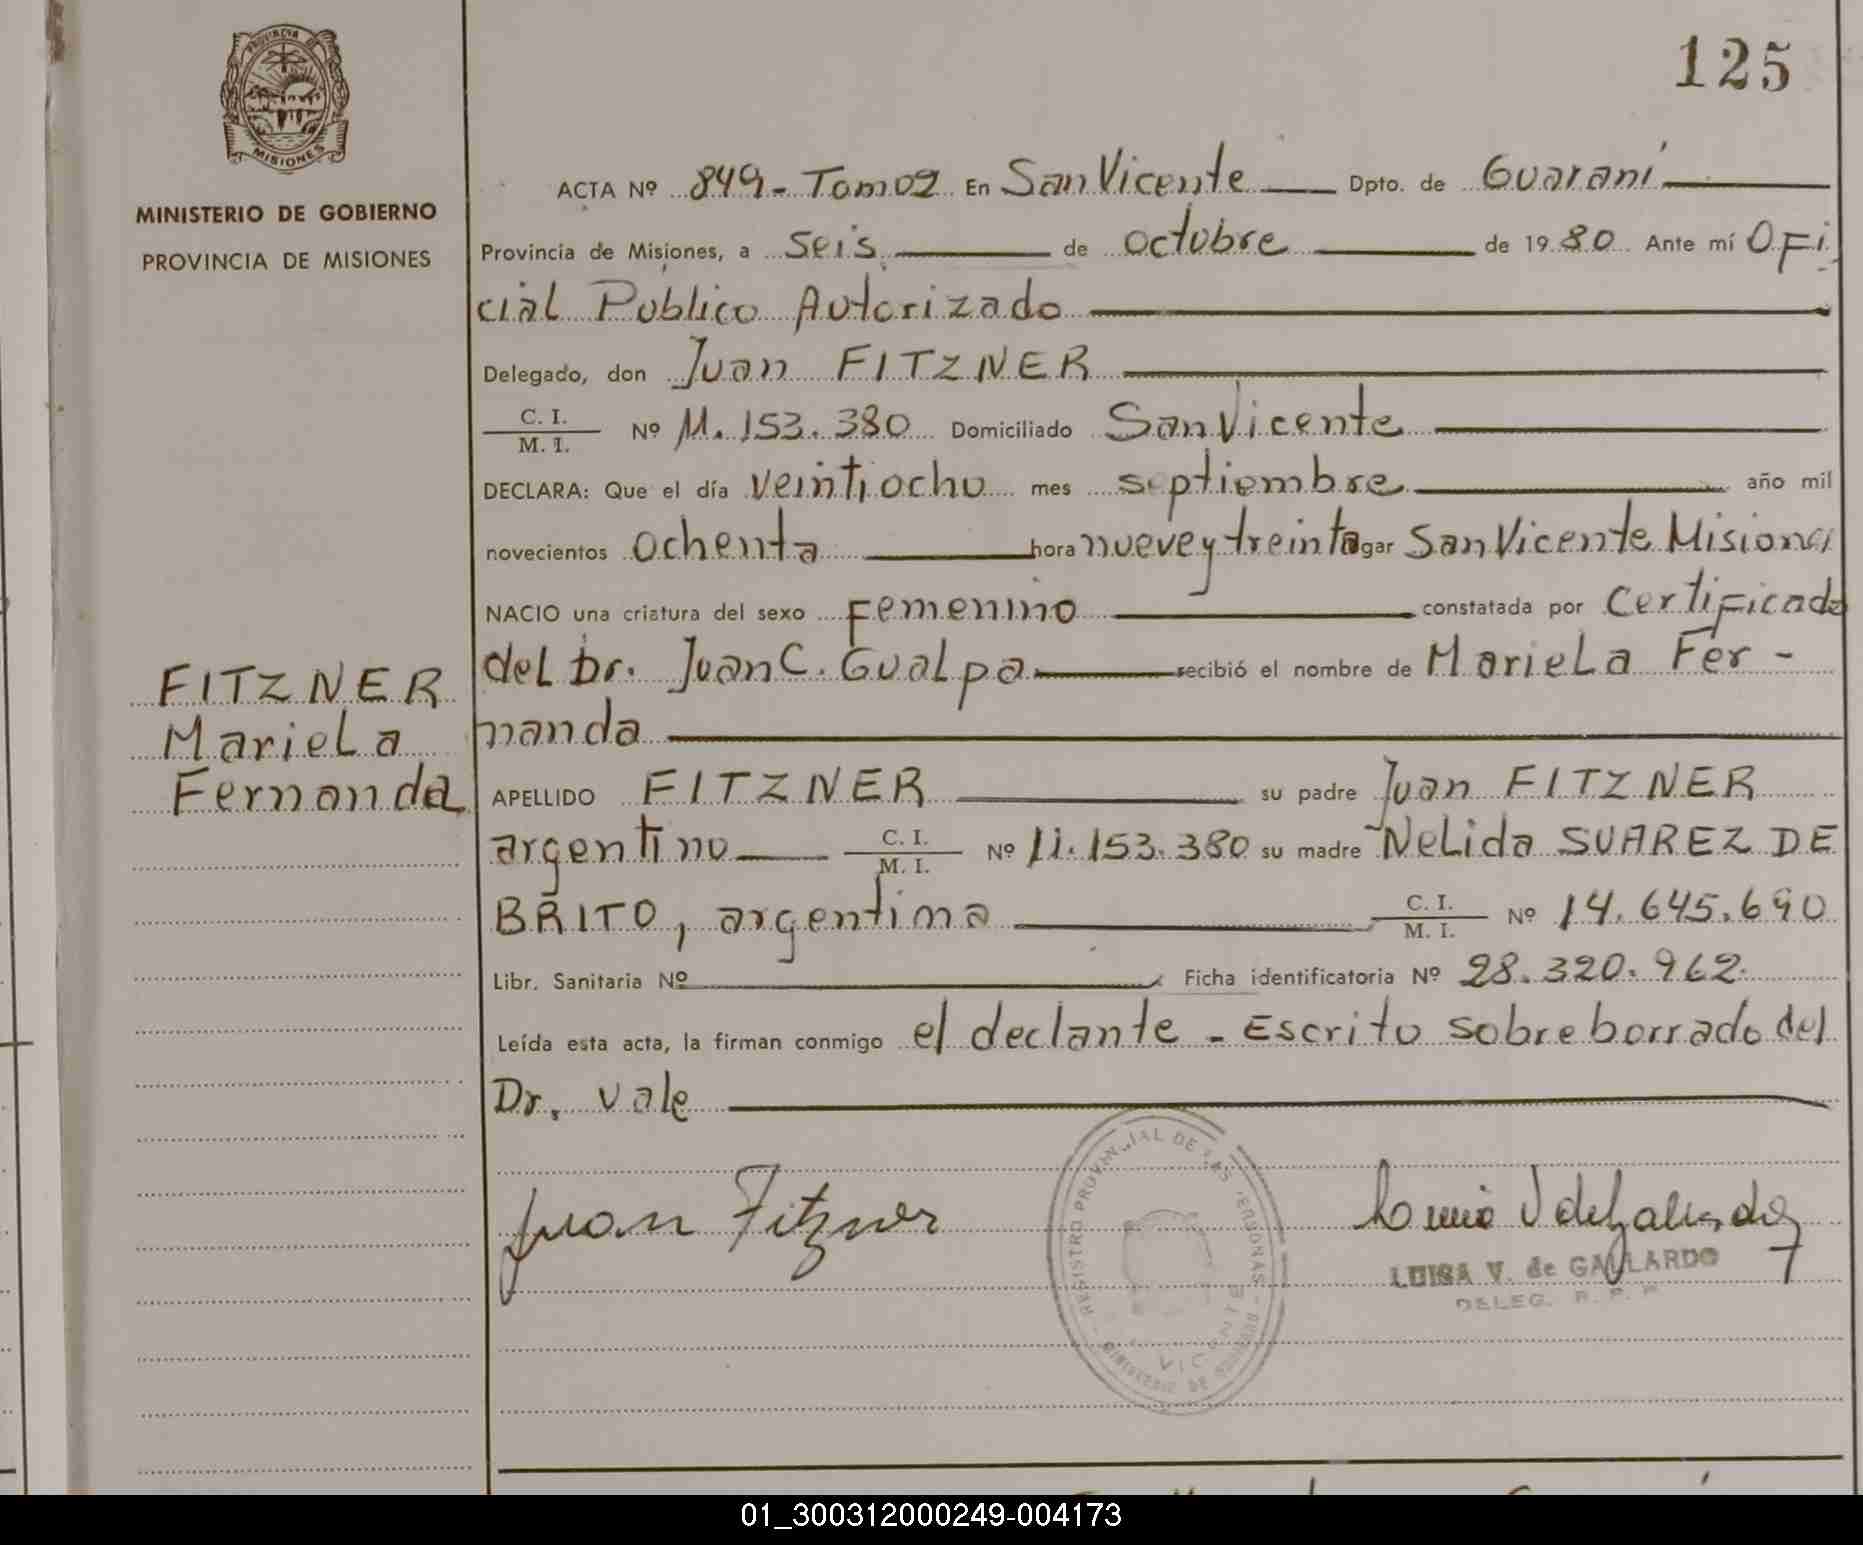 125
PROVINCIA DE
MISIONES
MINISTERIO DE GOBIERNO
PROVINCIA DE MISIONES
ACTA Nº 849- Tomo2 En San Vicente Dpto. de Guaraní
Provincia de Misiones, a seis de octubre de 1980 Ante mí Ofi
cial Publico Autorizado
Delegado, don Juan FITZNER
C. I.
M. I.
Nº 11.153.380 Domiciliado San Vicente
DECLARA: Que el día veintiocho mes septiembre año mil
novecientos ochenta hora nueve y treinta gar San Vicente Misiones
NACIO una criatura del sexo Femenino constatada por certificado
del Dr. Juan C. Gualpa recibió el nombre de Mariela Fer-
nanda
FITZNER
Mariela
Fernanda
APELLIDO FITZNER su padre Juan FITZNER
argentino C. I. M. I. Nº 11.153.380 su madre Nelida SUAREZ DE
BRITO, argentina C. I. M. I. Nº 14.645.690
Libr. Sanitaria Nº Ficha identificatoria Nº 28.320.962
Leída esta acta, la firman conmigo el declante - Escrito sobre borrado del
Dr. vale
Juan Fitzner
REGISTRO PROVINCIAL DE LAS PERSONAS
LUISA V. de GALLARDO
DELEG. R. P. P.
01_300312000249-004173